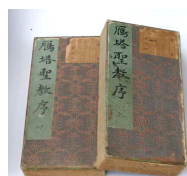 雁塔聖教序
雁塔聖教序